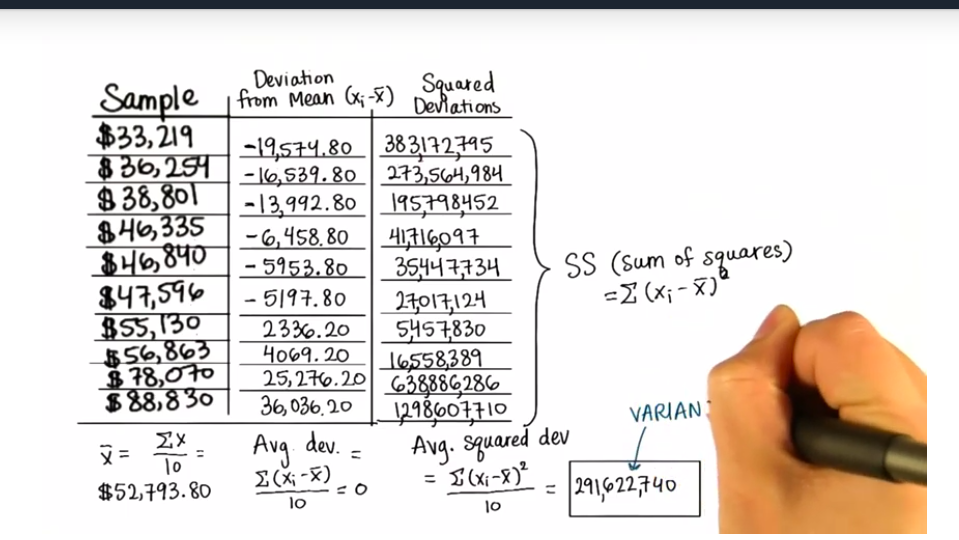 Sample
Deviation
from Mean (xᵢ-x̄)
Squared
Deviations
$33,219 -19,574.80 383,172,795
$36,254 -16,539.80 273,564,984
$38,801 -13,992.80 195,798,452
$46,335 -6,458.80 41,716,097
$46,840 -5953.80 35,447,734
$47,596 -5197.80 27,017,124
$55,130 2336.20 5,457,830
$56,863 4069.20 16,558,389
$78,070 25,276.20 638,886,286
$88,830 36,036.20 1,298,607,710
SS (sum of squares)
=Σ(xᵢ-x̄)²
VARIAN
x̄ = Σx/10 =
$52,793.80
Avg. dev. =
Σ(xᵢ-x̄)/10 = 0
Avg. squared dev
= Σ(xᵢ-x̄)²/10 = 291,622,740